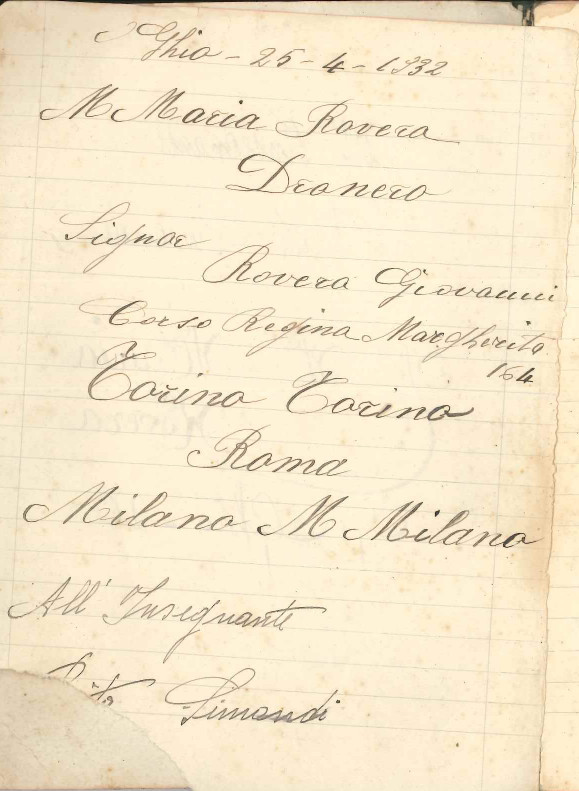 Ghio - 25 - 4 - 1932
M Maria Rovera
Dronero
Signor
Rovera Giovanni
Corso Regina Margherita
164
Torino Torino
Roma
Milano M Milano
All' Insegnante
Simondi